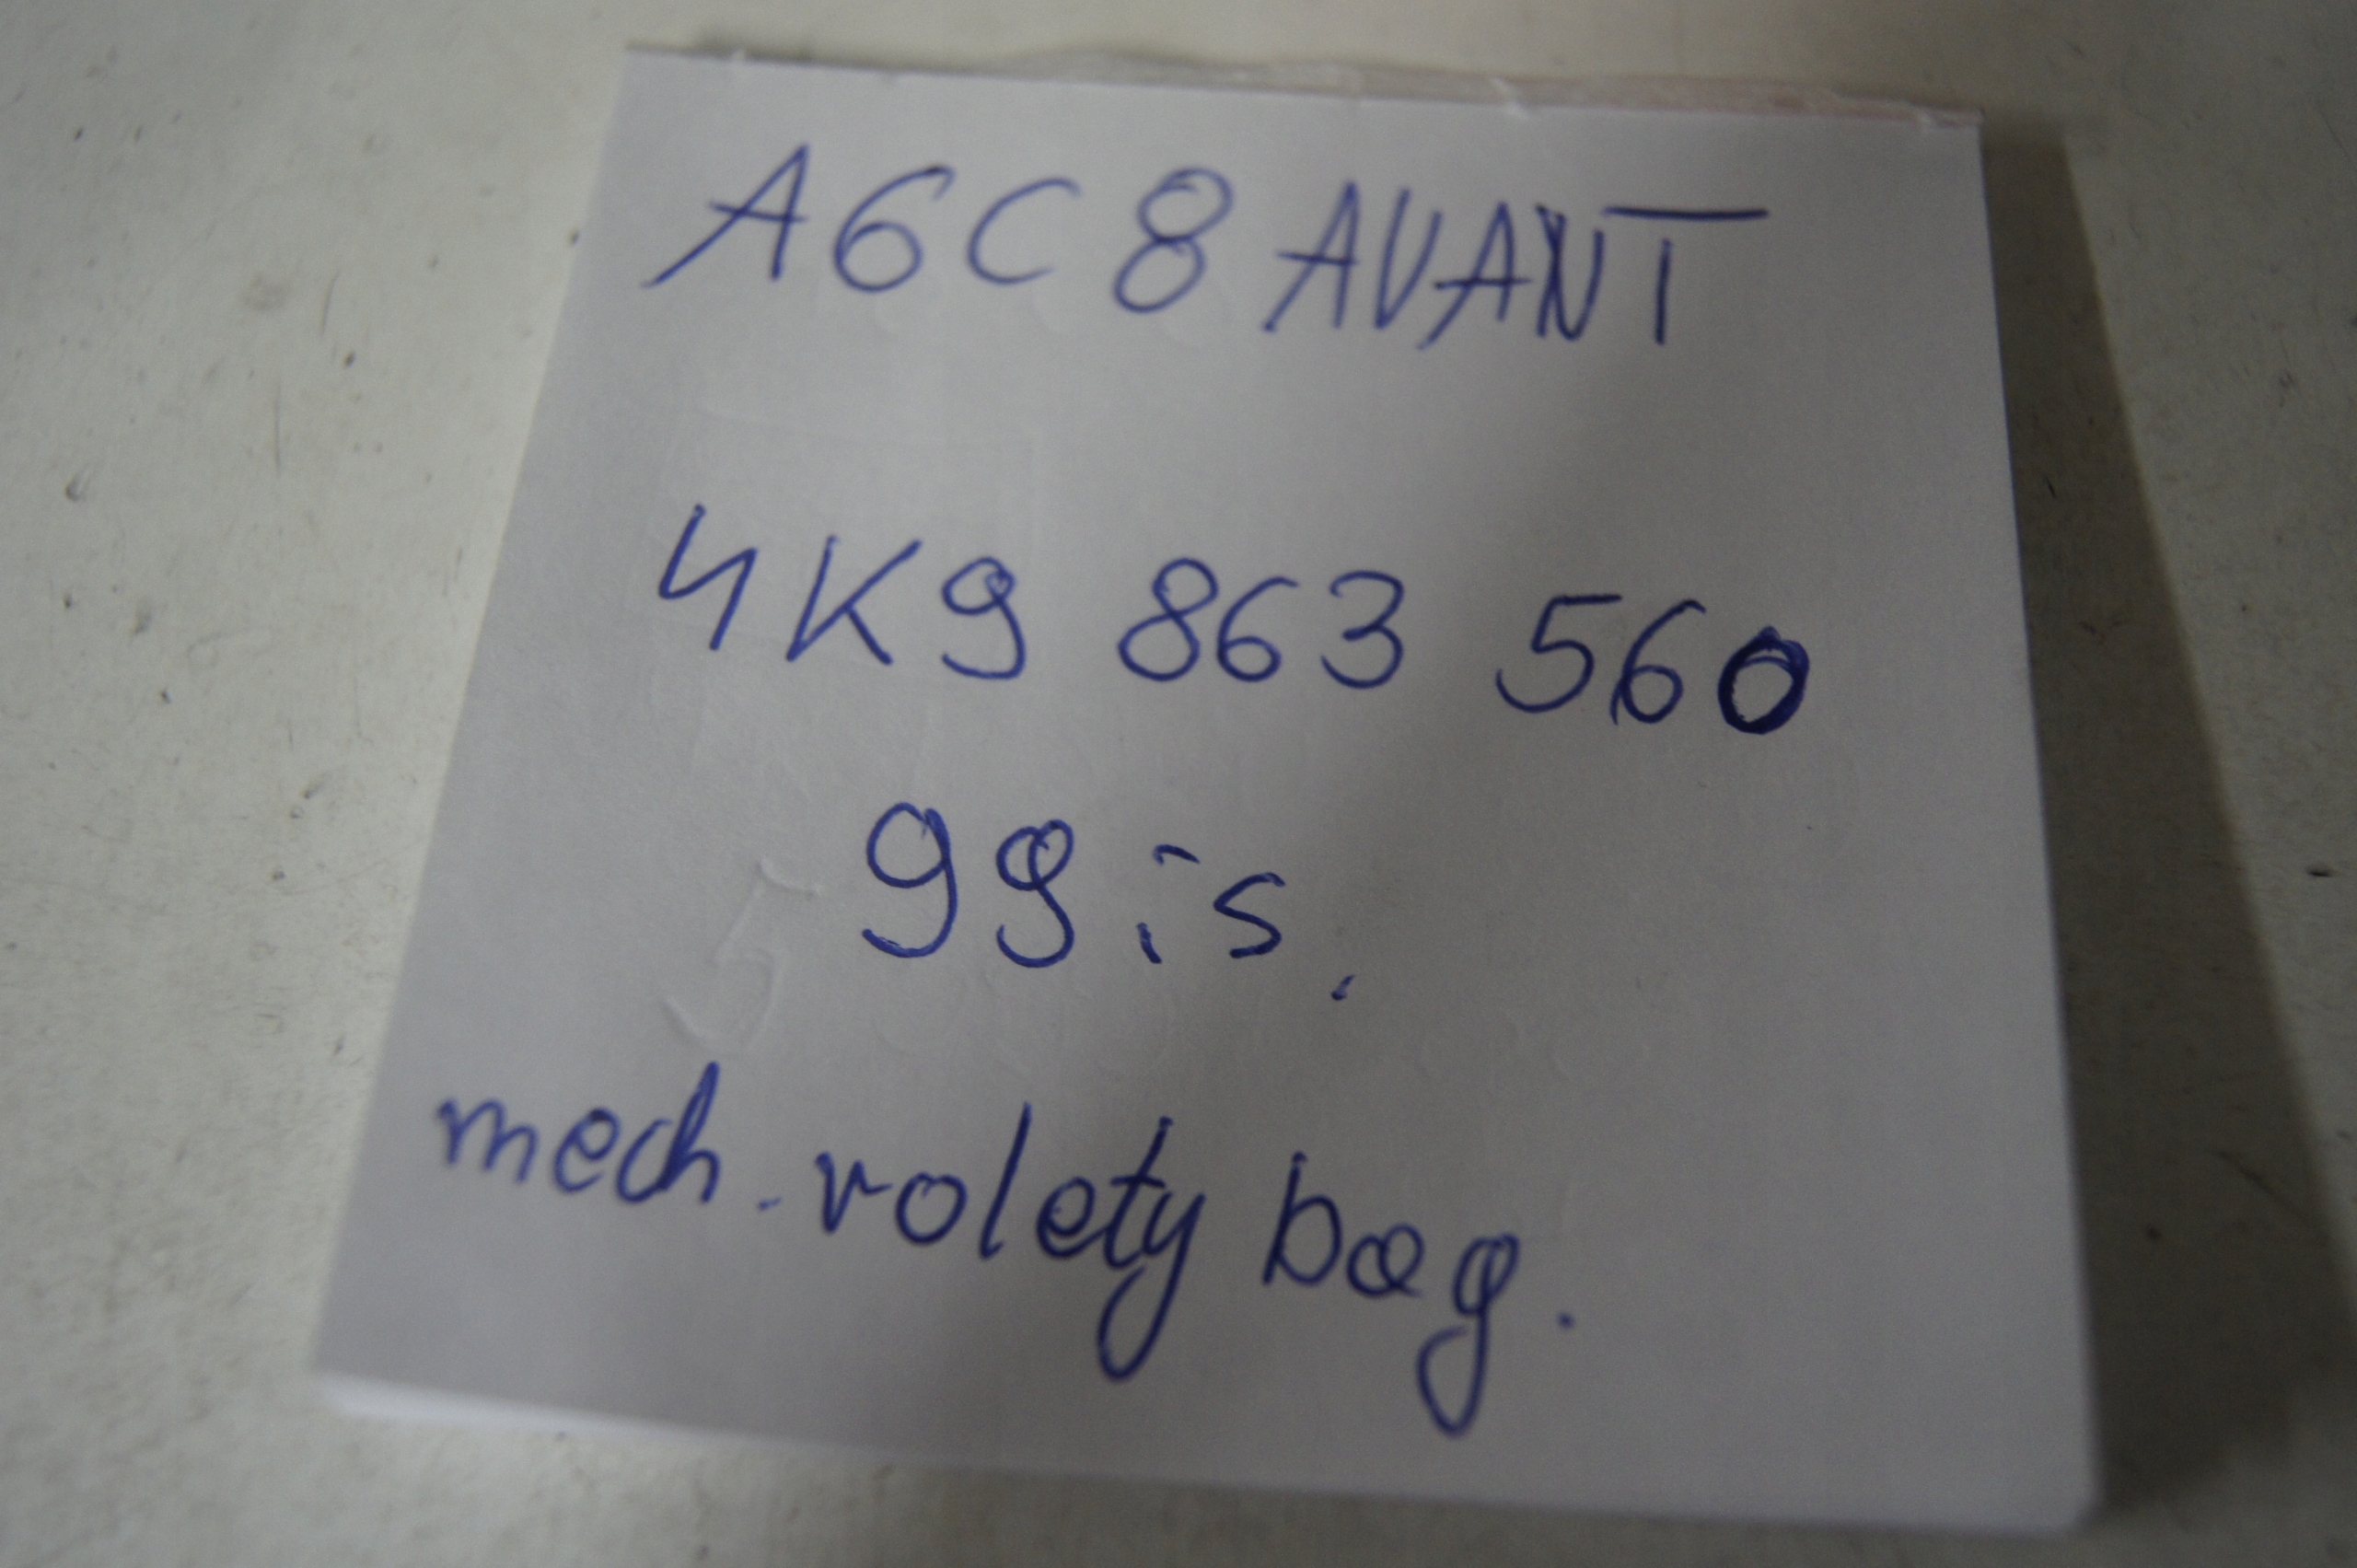 A6C8 AVANT
4K9 863 560
99is.
mech. rolety bag.